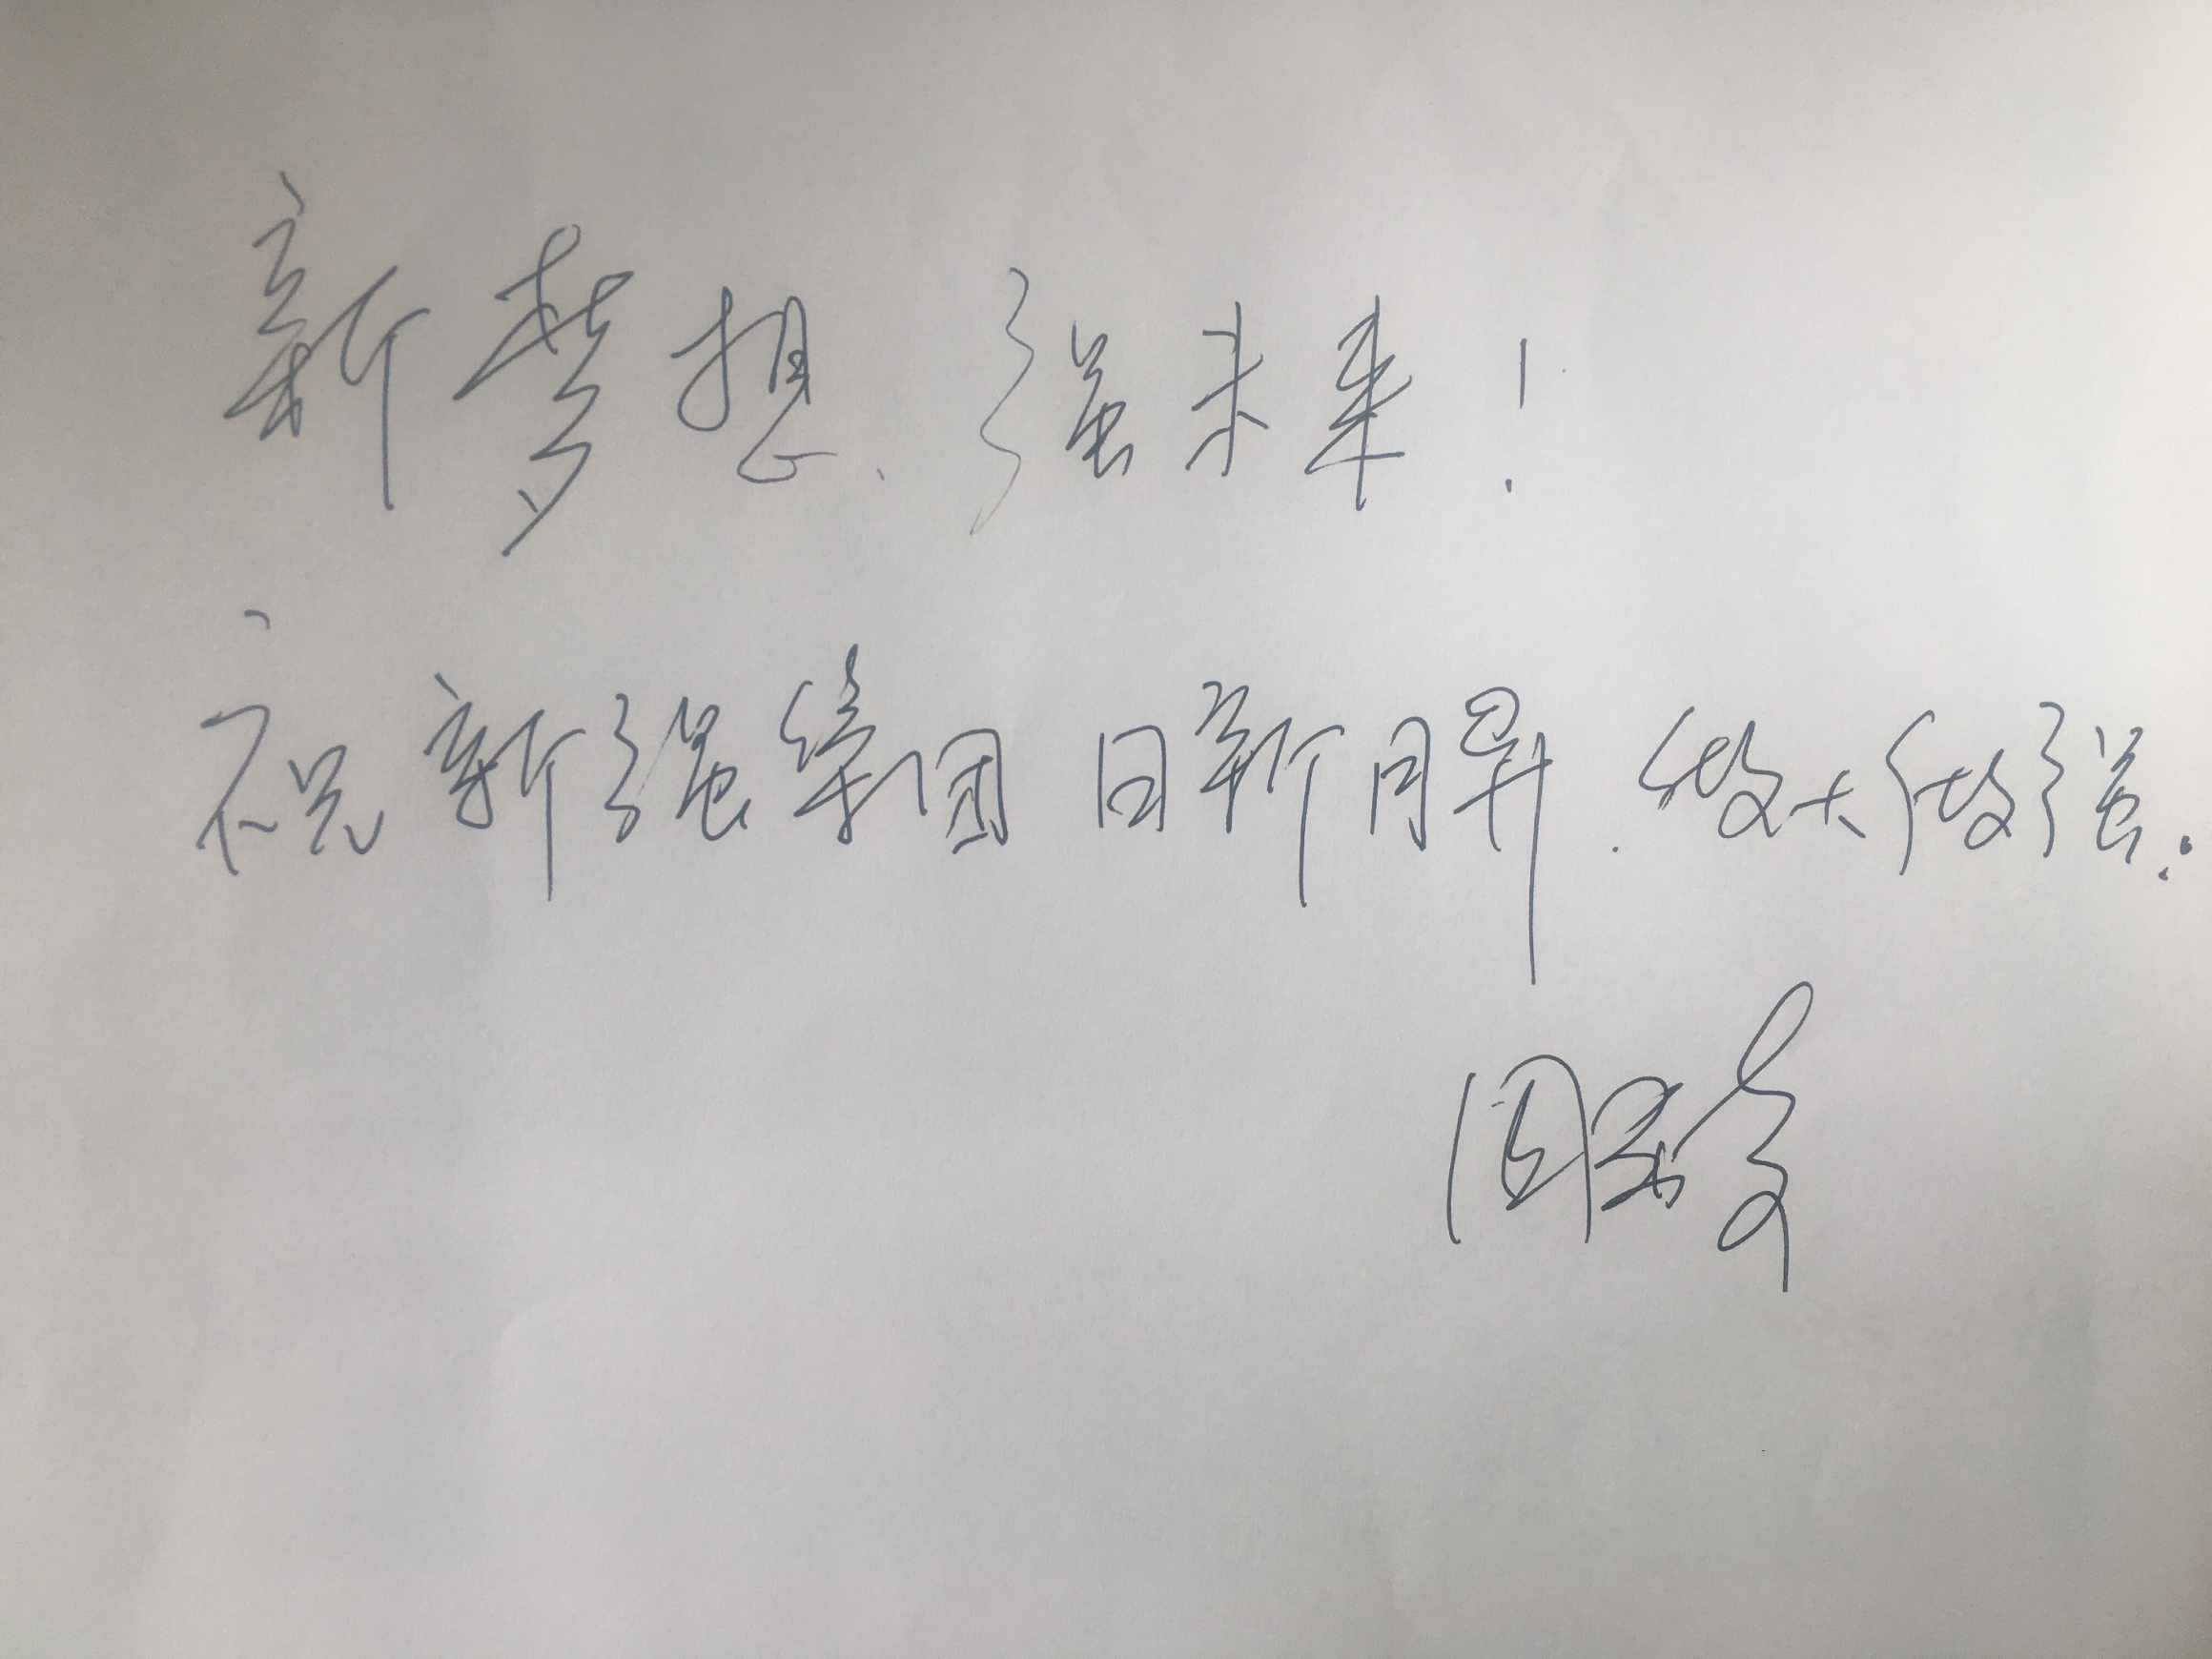 新梦想、强未来！
祝新强集团日新月异、做大做强！
周